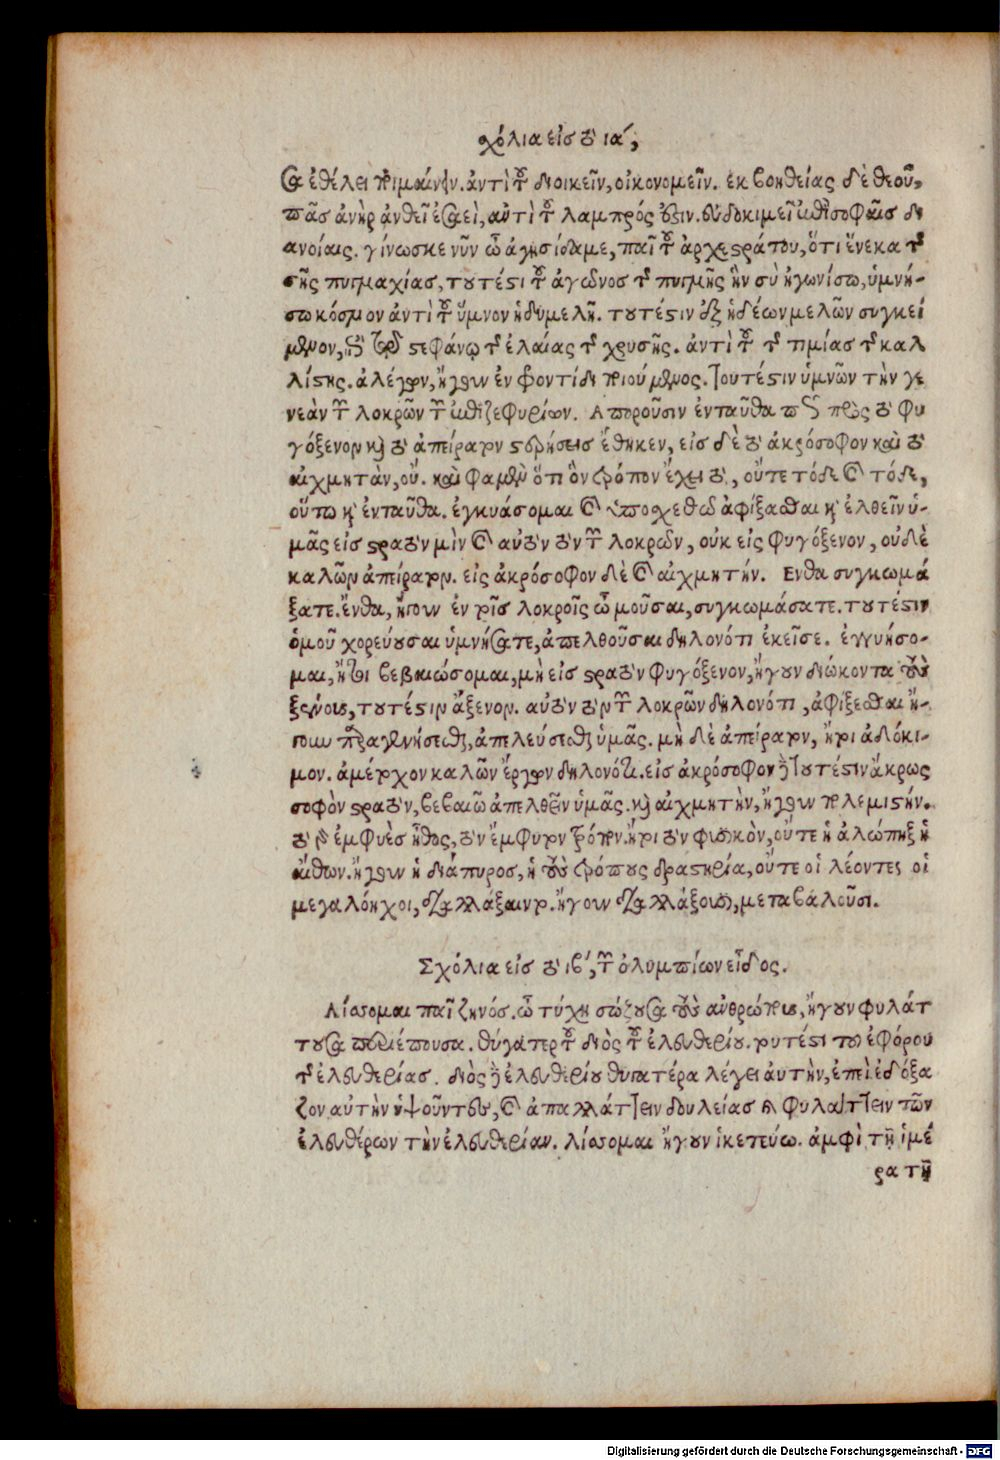 χόλια εἰς τὸ ια´,
σα ἐθέλει ποιμαίνειν. ἀντὶ τοῦ διοικεῖν, οἰκονομεῖν. ἐκ βοηθείας δὲ θεοῦ,
πᾶς ἀνὴρ ἀνθεῖ ἐσαεὶ, αὐτὶ τοῦ λαμπρός ὅζιν. εὐδοκιμεῖ ἐπὶ σοφαῖς δι
ανοίαις. γίνωσκε νῦν ὦ ἀγησίδαμε, παῖ τοῦ ἀρχεστράτου, ὅτι ἕνεκα τῆς
σῆς πυγμαχίας, τουτέστι τοῦ ἀγῶνος τῆς πυγμῆς ἣν σὺ ἠγωνίσω, ὑμνή-
σω κόσμον ἀντὶ τοῦ ὕμνον ἡδυμελῆ. τουτέστιν ἐξ ἡδέων μελῶν συγκεί
μενον, ἐπὶ τῷ στεφάνῳ τῆς ἐλαίας τῆς χρυσῆς. ἀντὶ τοῦ τῆς τιμίας τῆς καλ
λίστης. ἀλέγων, ἤγουν ἐν φροντίδι ποιούμενος. τουτέστιν ὑμνῶν τὴν γε
νεὰν τῶν λοκρῶν τῶν ἐπιζεφυρίων. Απορούσιν ἐνταῦθα πῶς πρὸς τὸ φυ
γόξενον καὶ τὸ ἀπείρατον στερήσεις ἔθηκεν, εἰς δὲ τὸ ἀκρόσοφον καὶ τὸ
αἰχμητὰν, οὔ. καὶ φαμὲν ὅτι ὃν τρόπον ἔχει τὸ, οὔτε τόδε καὶ τόδε,
οὕτω καὶ ἐνταῦθα. ἐγγυάσομαι καὶ ὑποσχεθῶ ἀφίξασθαι καὶ ἐλθεῖν ὑ-
μᾶς εἰς στρατὸν μὲν καὶ αὐτὸν τὸν τῶν λοκρῶν, οὐκ εἰς φυγόξενον, οὐδὲ
καλῶν ἀπείρατον. εἰς ἀκρόσοφον δὲ καὶ αἰχμητήν. Ενθα συγκωμά
ξατε. ἔνθα, ἤγουν ἐν τοῖς λοκροῖς ὦ μοῦσαι, συγκωμάσατε. τουτέστιν
ὁμοῦ χορεύουσαι ὑμνήσατε, ἀπελθοῦσαι δηλονότι ἐκεῖσε. ἐγγυήσο-
μαι, ἤτοι βεβαιώσομαι, μὴ εἰς στρατὸν φυγόξενον, ἤγουν διώκοντα τοὺς
ξένους, τουτέστιν ἄξενον. αὐτὸν τὸν τῶν λοκρῶν δηλονότι, ἀφίξεσθαι ἤ-
γουν παραγενήσεσθαι, ἀπελεύσεσθαι ὑμᾶς. μὴ δὲ ἀπείρατον, ἤτοι ἀδόκι-
μον. ἀμέτοχον καλῶν ἔργων δηλονότι. εἰς ἀκρόσοφον δὲ τουτέστιν ἄκρως
σοφὸν στρατὸν, βεβαιῶ ἀπελθεῖν ὑμᾶς. καὶ αἰχμητὴν, ἤγουν πολεμιστήν.
τὸ γὰρ ἐμφυὲς ἦθος, τὸν ἔμφυτον τρόπον. ἤτοι τὸν φυσικὸν, οὔτε ἡ ἀλώπηξ ἡ
αἴθων. ἤγουν ἡ διάπυρος, ἡ τοὺς τρόπους δραστηρία, οὔτε οἱ λέοντες οἱ
μεγαλόηχοι, διαλλάξαιντο. ἤγουν διαλλάξουσι, μεταβάλουσι.
Σχόλια εἰς τὸ ιβ´, τῶν ὀλυμπίων εἶδος.
Λίσσομαι παῖ ζηνός. ὦ τύχη σώζουσα τοὺς ἀνθρώπους, ἤγουν φυλάτ
τουσα περιέπουσα. θύγατερ τοῦ διὸς τοῦ ἐλευθερίου. τουτέστι του ἐφόρου
τῆς ἐλευθερίας. διὸς δὲ ἐλευθερίου θυγατέρα λέγει αὐτὴν, ἐπεὶ ἐδόξα
ζον αὐτὴν ὑψοῦντες, καὶ ἀπαλλάττειν δουλείας καὶ φυλάττειν τῶν
ἐλευθέρων τὴν ἐλευθερίαν. λίσσομαι ἤγουν ἱκετεύω. ἀμφὶ τῇ ἱμέ
ρα τῇ
Digitalisierung gefördert durch die Deutsche Forschungsgemeinschaft - DFG